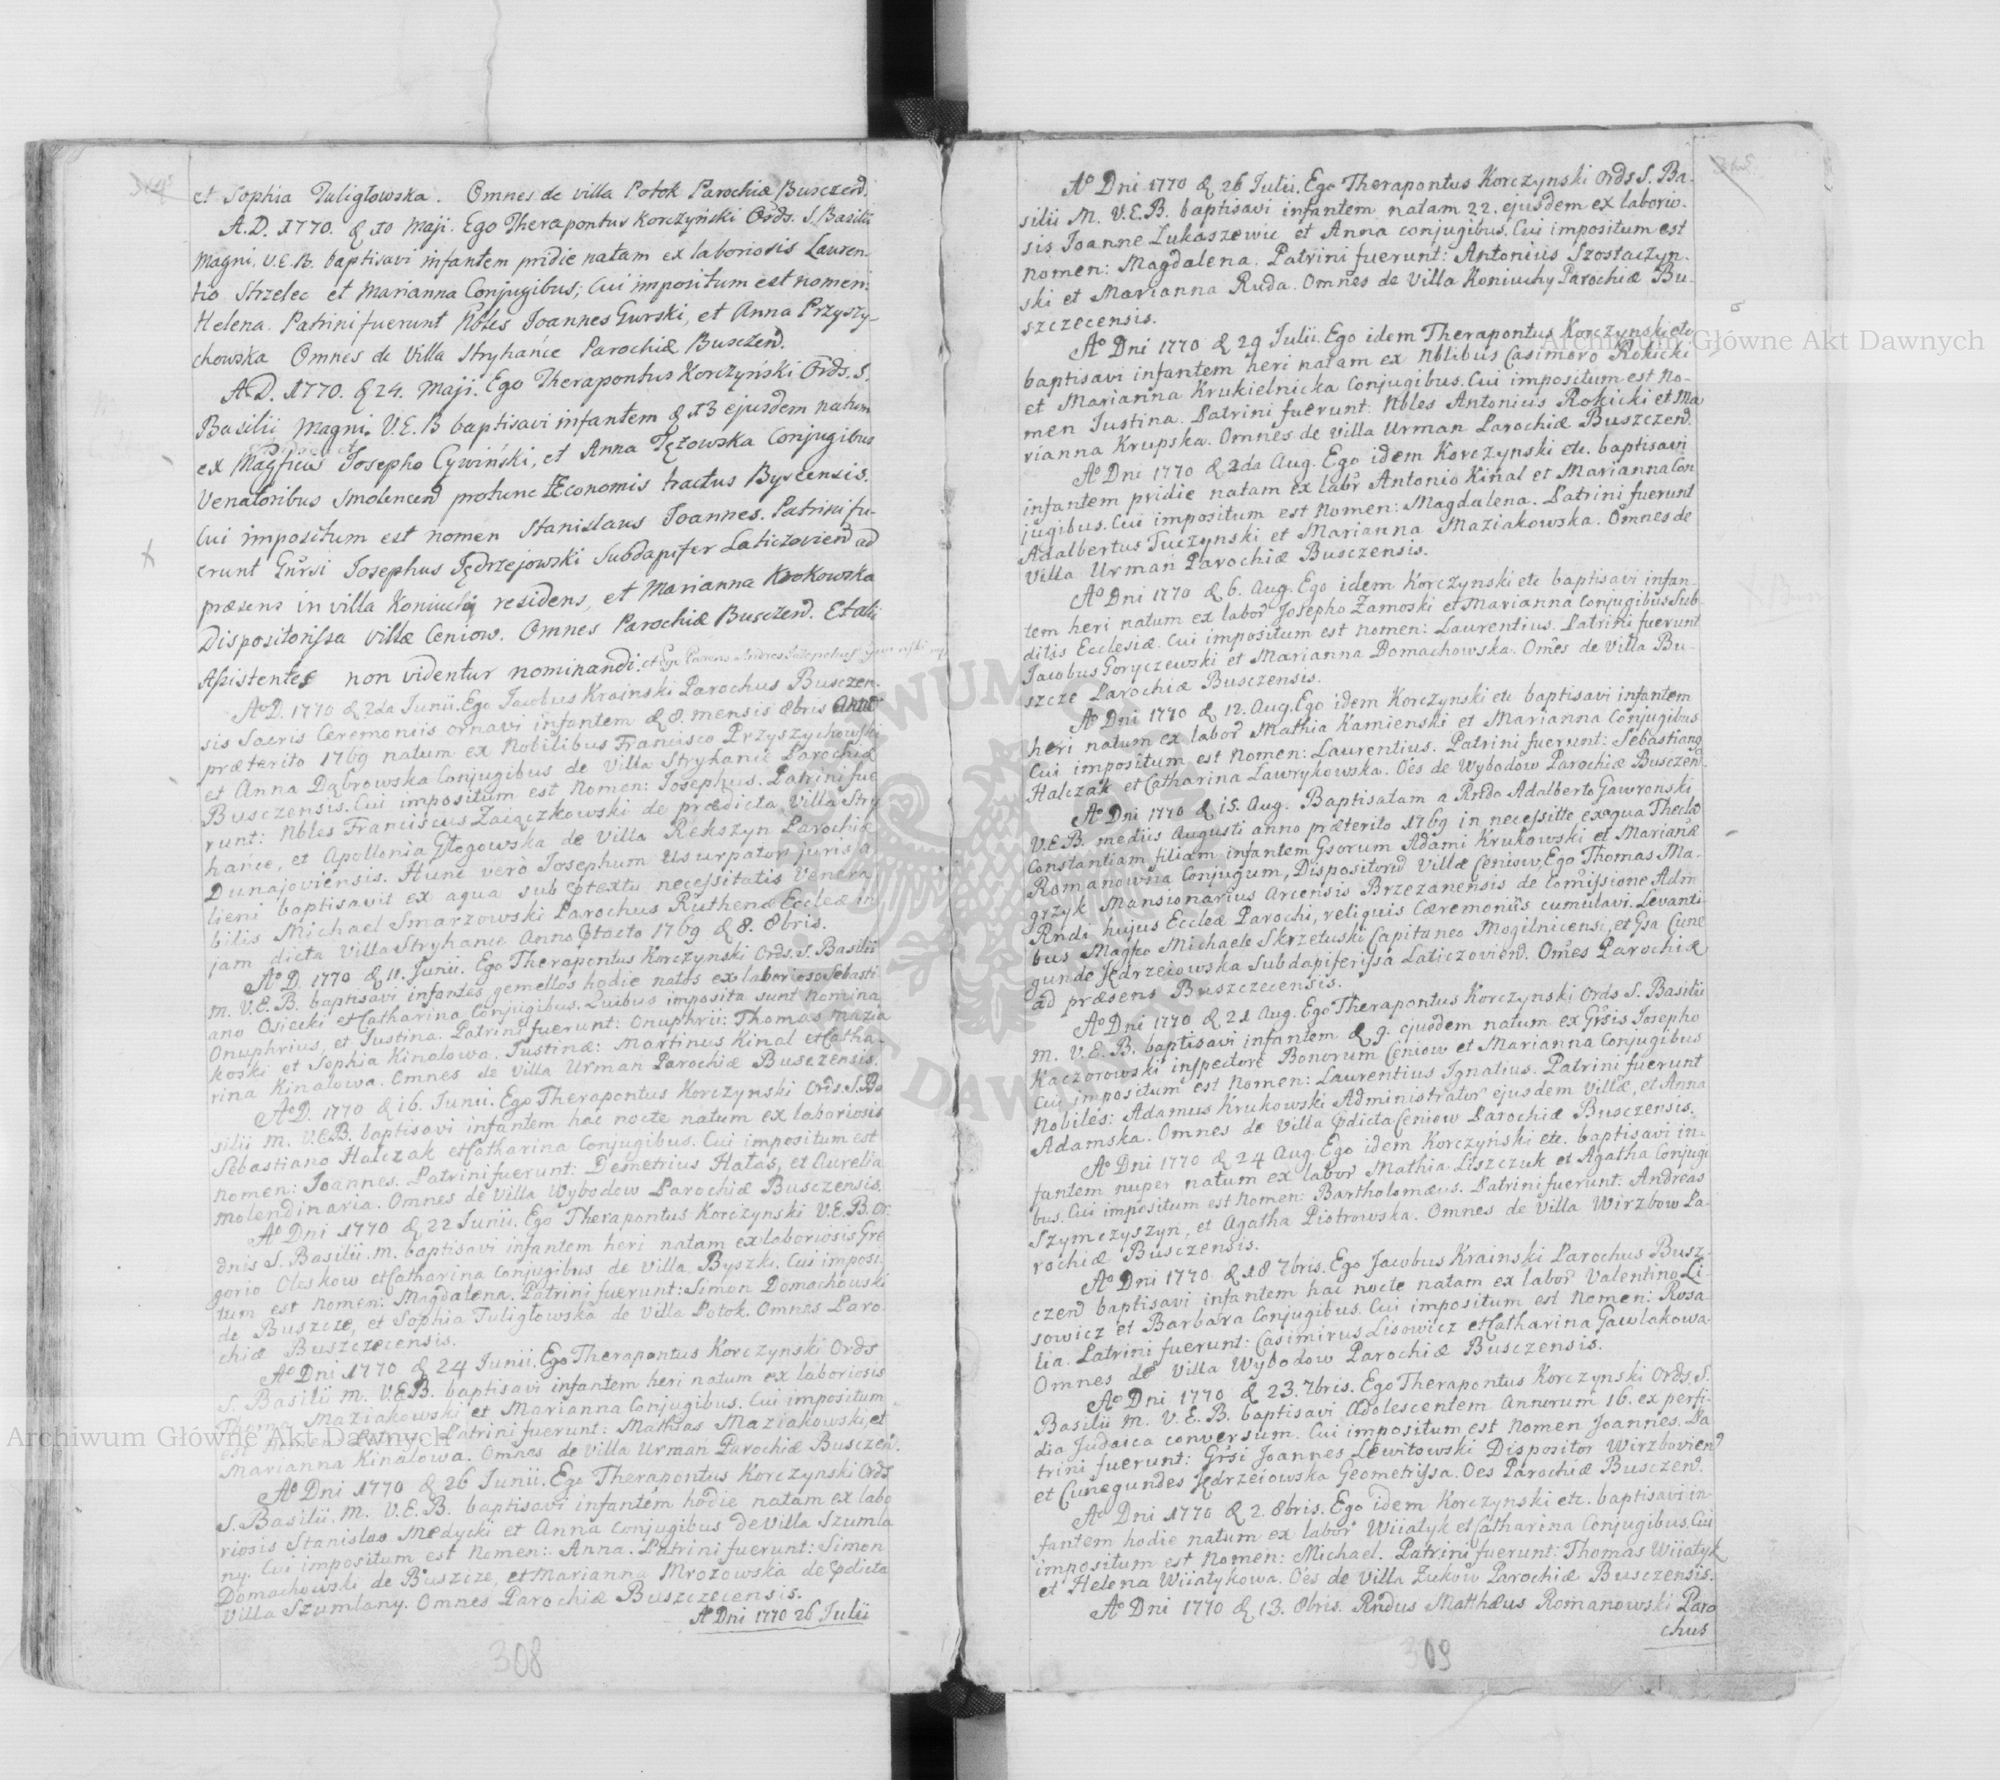 et Sophia Tuligłowska. Omnes de villa Potok Parochiæ Busczen̄.
A.D. 1770. d 10 Maji. Ego Therapontus Korczyński Ords. S. Basilii
Magni. V.E.B. baptisavi infantem pridie natam ex laboriosis Lauren-
tio Strzelec et Marianna Conjugibus; Cui impositum est nomen:
Helena. Patrini fuerunt Nbles Joannes Gurski, et Anna Przyszy-
chowska Omnes de Villa Stryhańce Parochiæ Busczen̄.
A.D. 1770. d 24. Maji. Ego Therapontus Korczyński Ords. S.
Basilii Magni. V.E.B baptisavi infantem d 13 ejusdem natum
ex Magficis Josepho Cywiński, et Anna Tęzowska Conjugibus
Venatoribus Smolencen̄ protunc Œconomis tractus Byscensis.
Cui impositum est nomen Stanislaus Joannes. Patrini fu-
erunt Gn̄rsi Josephus Jędrzejowski Subdapifer Laticzovien̄ ad
præsens in villa Koniuchy residens, et Marianna Krokowska
Dispositorissa villæ Ceniow. Omnes Parochiæ Busczen̄. Et alii
Assistentes non videntur nominandi.
Ao D. 1770 d 2da Junii. Ego Jacobus Krainski Parochus Busczen-
sis Sacris Ceremoniis ornavi infantem d 8. mensis 8bris Anno
præterito 1769 natum ex Nobilibus Francisco Przyszychowski
et Anna Dąbrowska Conjugibus de Villa Stryhańce Parochiæ
Busczensis. Cui impositum est Nomen: Josephus. Patrini fue
runt: Nbles Franciscus Zaiączkowski de prædicta Villa Stry
hańce, et Apollonia Głogowska de Villa Rekszyn Parochiæ
Dunajoviensis. Hunc verò Josephum Usurpator juris a
lieni baptisavit ex aqua sub ptextu necessitatis Venera
bilis Michael Smarzowski Parochus Ruthenæ Eccleæ in
jam dicta Villa Stryhance Anno ptacto 1769 d 8. 8bris.
Ao D. 1770 d 11. Junii. Ego Therapontus Korczynski Ords. S. Basilii
M. V.E.B. baptisavi infantes gemellos hodie natos ex laborioso Sebasti
ano Osiecki et Catharina Conjugibus. Quibus imposita sunt Nomina
Onuphrius, et Justina. Patrini fuerunt: Onuphrii: Thomas Mazia
koski et Sophia Kinalowa. Justinæ: Martinus Kinal et Catha-
rina Kinalowa. Omnes de Villa Urman Parochiæ Busczensis.
Ao D. 1770 d 16. Junii. Ego Therapontus Korczynski Ords. S. Ba
silii M. V.E.B. baptisavi infantem hac nocte natum ex laboriosis
Sebastiano Halczak et Catharina Conjugibus. Cui impositum est
Nomen: Joannes. Patrini fuerunt: Demetrius Hałas, et Aurelia
Molendinaria. Omnes de Villa Wybodow Parochiæ Busczensis.
Ao Dni 1770 d 22 Junii. Ego Therapontus Korczynski V.E.B. Or.
dnis S. Basilii. M. baptisavi infantem heri natam ex laboriosis Gre
gorio Oleskow et Catharina Conjugibus de Villa Byszki. Cui imposi.
tum est Nomen: Magdalena. Patrini fuerunt: Simon Domachowski
de Buszcze, et Sophia Tuligłowska de Villa Potok. Omnes Paro
chiæ Buszczecensis.
Ao Dni 1770 d 24 Junii. Ego Therapontus Korczynski Ords
S. Basilii M. V.E.B. baptisavi infantem heri natum ex laboriosis
Thoma Maziakowski et Marianna Conjugibus. Cui impositum
est Nomen: Petrus. Patrini fuerunt: Mathias Maziakowski, et
Marianna Kinalowa. Omnes de Villa Urmań Parochiæ Busczen̄.
Ao Dni 1770 d 26 Junii. Ego Therapontus Korczynski Ords
S. Basilii. M. V.E.B. baptisavi infantem hodie natam ex labo
riosis Stanislao Medycki et Anna Conjugibus de Villa Szumla
ny. Cui impositum est Nomen: Anna. Patrini fuerunt: Simon
Domachowski de Buszcze, et Marianna Mrozowska de pdicta
Villa Szumlany. Omnes Parochiæ Buszczecensis.
Ao Dni 1770 26 Julii
308
365
Ao Dni 1770 d 26 Julii. Ego Therapontus Korczynski Ords S. Ba-
silii M. V.E.B. baptisavi infantem natam 22. ejusdem ex laborio-
sis Joanne Lukaszewic et Anna conjugibus. Cui impositum est
Nomen: Magdalena. Patrini fuerunt: Antonius Szostaczyn-
ski et Marianna Ruda. Omnes de Villa Koniuchy Parochiæ Bu-
szczecensis.
Ao Dni 1770 d 29 Julii. Ego idem Therapontus Korczynski etc
baptisavi infantem heri natam ex Nblibus Casimiro Rokicki
et Marianna Krukielnicka Conjugibus. Cui impositum est No-
men Justina. Patrini fuerunt: Nbles Antonius Rokicki et Ma
rianna Krupska. Omnes de Villa Urman Parochiæ Buszczen̄.
Ao Dni 1770 d 2da Aug. Ego idem Korczynski etc. baptisavi
infantem pridie natam ex labr̄ Antonio Kinal et Marianna Con
jugibus. Cui impositum est Nomen: Magdalena. Patrini fuerunt
Adalbertus Tuczynski et Marianna Maziakowska. Omnes de
Villa Urmań Parochiæ Busczensis.
Ao Dni 1770 d 6. Aug. Ego idem Korczynski etc baptisavi infan-
tem heri natum ex labor̄ Josepho Zamoski et Marianna Conjugibus Sub-
ditis Ecclesiæ. Cui impositum est Nomen: Laurentius. Patrini fuerunt
Jacobus Goryczewski et Marianna Domachowska. Om̄es de Villa Bu-
szcze Parochiæ Busczensis.
Ao Dni 1770 d 12. Aug. Ego idem Korczynski etc baptisavi infantem
heri natum ex labor̄ Mathia Kamienski et Marianna Conjugibus
Cui impositum est Nomen: Laurentius. Patrini fuerunt: Sebastiang
Halczak et Catharina Lawrykowska. Oēs de Wybodow Parochiæ Busczen̄.
Ao Dni 1770 d 15. Aug. Baptisatam a Rndo Adalberto Gawronski
V.E.B. mediis Augusti anno præterito 1769 in necessitte ex aqua Theclā
Constantiam filiam infantem Gsorum Adami Krukowski et Marianæ
Romanowna Conjugum, Dispositorū Villæ Ceniow, Ego Thomas Ma-
grzyk Mansionarius Arcensis Brzezanensis de Comissione Adm
Rndi hujus Eccleæ Parochi, reliquis Cæremoniis cumulavi. Levanti-
bus Magfco Michaele Skrzetuski Capitaneo Mogilnicensi, et Gsa Cune
gunde Jędrzeiowska Subdapiferissa Laticzovien̄. Omēs Parochiæ
ad præsens Buszczecensis.
Ao Dni 1770 d 21 Aug. Ego Therapontus Korczynski Ords S. Basilii
M. V.E.B. baptisavi infantem d 9. ejusdem natum ex Gr̄sis Josepho
Kaczorowski inspectore Bonorum Ceniow et Marianna Conjugibus
Cui impositum est Nomen: Laurentius Ignatius. Patrini fuerunt
Nobiles: Adamus Krukowski Administrator ejusdem Villæ, et Anna
Adamska. Omnes de Villa pdicta Ceniow Parochiæ Busczensis.
Ao Dni 1770 d 24 Aug. Ego idem Korczyński etc. baptisavi in-
fantem nuper natum ex labor̄ Mathia Liszczuk et Agatha Conjugi
bus. Cui impositum est Nomen: Bartholomæus. Patrini fuerunt: Andreas
Szymczyszyn, et Agatha Piotrowska. Omnes de Villa Wirzbow Pa-
rochiæ Busczensis.
Ao Dni 1770 d 18 7bris. Ego Jacobus Krainski Parochus Busz-
czen̄ baptisavi infantem hac nocte natam ex labor̄ Valentino Li-
sowicz et Barbara Conjugibus. Cui impositum est Nomen: Rosa
lia. Patrini fuerunt: Casimirus Lisowicz et Catharina Gawlakowa.
Omnes de Villa Wybodow Parochiæ Busczensis.
Ao Dni 1770 d 23. 7bris. Ego Therapontus Korczynski Ords. S.
Basilii M. V.E.B. baptisavi Adolescentem Annorum 16. ex perfi-
dia Judaica conversum. Cui impositum est Nomen Joannes. Pa
trini fuerunt: Gr̄si Joannes Lewitowski Dispositor Wirzbovien̄
et Cunegundes Jędrzeiowska Geometrissa. Oes Parochiæ Busczen̄.
Ao Dni 1770 d 2. 8bris. Ego idem Korczynski etc. baptisavi in-
fantem hodie natum ex labor̄ Wiiatyk et Catharina Conjugibus. Cui
impositum est Nomen: Michael. Patrini fuerunt: Thomas Wiiatyk
et Helena Wiiatykowa. Oēs de Villa Zukow Parochiæ Busczensis.
Ao Dni 1770 d 13. 8bris. Rndus Matthæus Romanowski Paro
chus
309
Archiwum Główne Akt Dawnych
Archiwum Główne Akt Dawnych